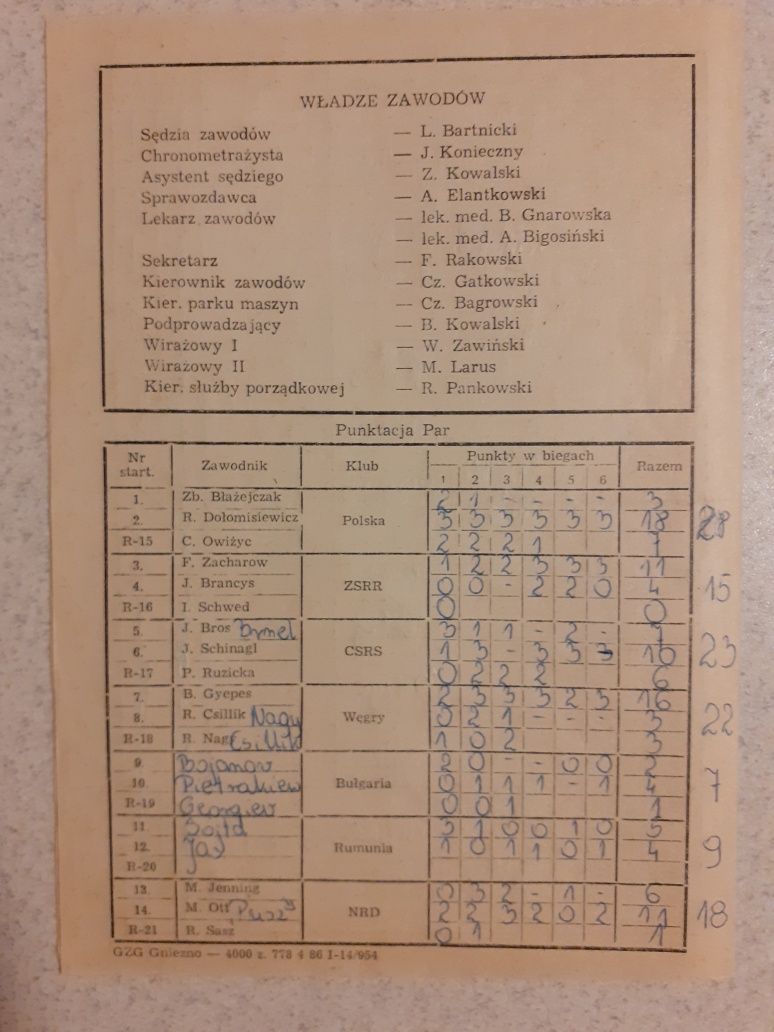 WŁADZE ZAWODÓW
Sędzia zawodów — L. Bartnicki
Chronometrażysta — J. Konieczny
Asystent sędziego — Z. Kowalski
Sprawozdawca — A. Elantkowski
Lekarz zawodów — lek. med. B. Gnarowska
— lek. med. A. Bigosiński
Sekretarz — F. Rakowski
Kierownik zawodów — Cz. Gatkowski
Kier. parku maszyn — Cz. Bagrowski
Podprowadzający — B. Kowalski
Wirażowy I — W. Zawiński
Wirażowy II — M. Larus
Kier. służby porządkowej — R. Pankowski
Punktacja Par
Nr start. Zawodnik Klub Punkty w biegach Razem
1 2 3 4 5 6
1. Zb. Błażejczak 2 1 - - - - 3
2. R. Dołomisiewicz Polska 3 3 3 3 3 3 18 28
R-15 C. Owiżyc 2 2 2 1 7
3. F. Zacharow 1 2 2 3 3 3 11
4. J. Brancys ZSRR 0 0 - 2 2 0 4 15
R-16 I. Schwed 0 0
5. J. Bros 3 1 1 - 2 - 7
6. J. Schinagl CSRS 1 3 - 3 3 3 10 23
R-17 P. Ruzicka 0 2 2 2 6
7. B. Gyepes 2 3 3 3 2 3 16
8. R. Csillik Nagy Węgry 0 2 1 - - - 3 22
R-18 R. Nagy Csillik 1 0 2 3
9. Bojanow 2 0 - - 0 0 2
10. Bułgaria 0 1 1 1 - 1 4 7
R-19 Georgiew 0 0 1 1
11. 3 1 0 0 1 0 5
12. Rumunia 1 0 1 1 0 1 4 9
R-20
13. M. Jenning 0 3 2 - 1 - 6
14. M. Ott NRD 2 2 3 2 0 2 11 18
R-21 R. Sasz 0 1 1
GZG Gniezno — 4000 z. 778 4 86 I-14/954